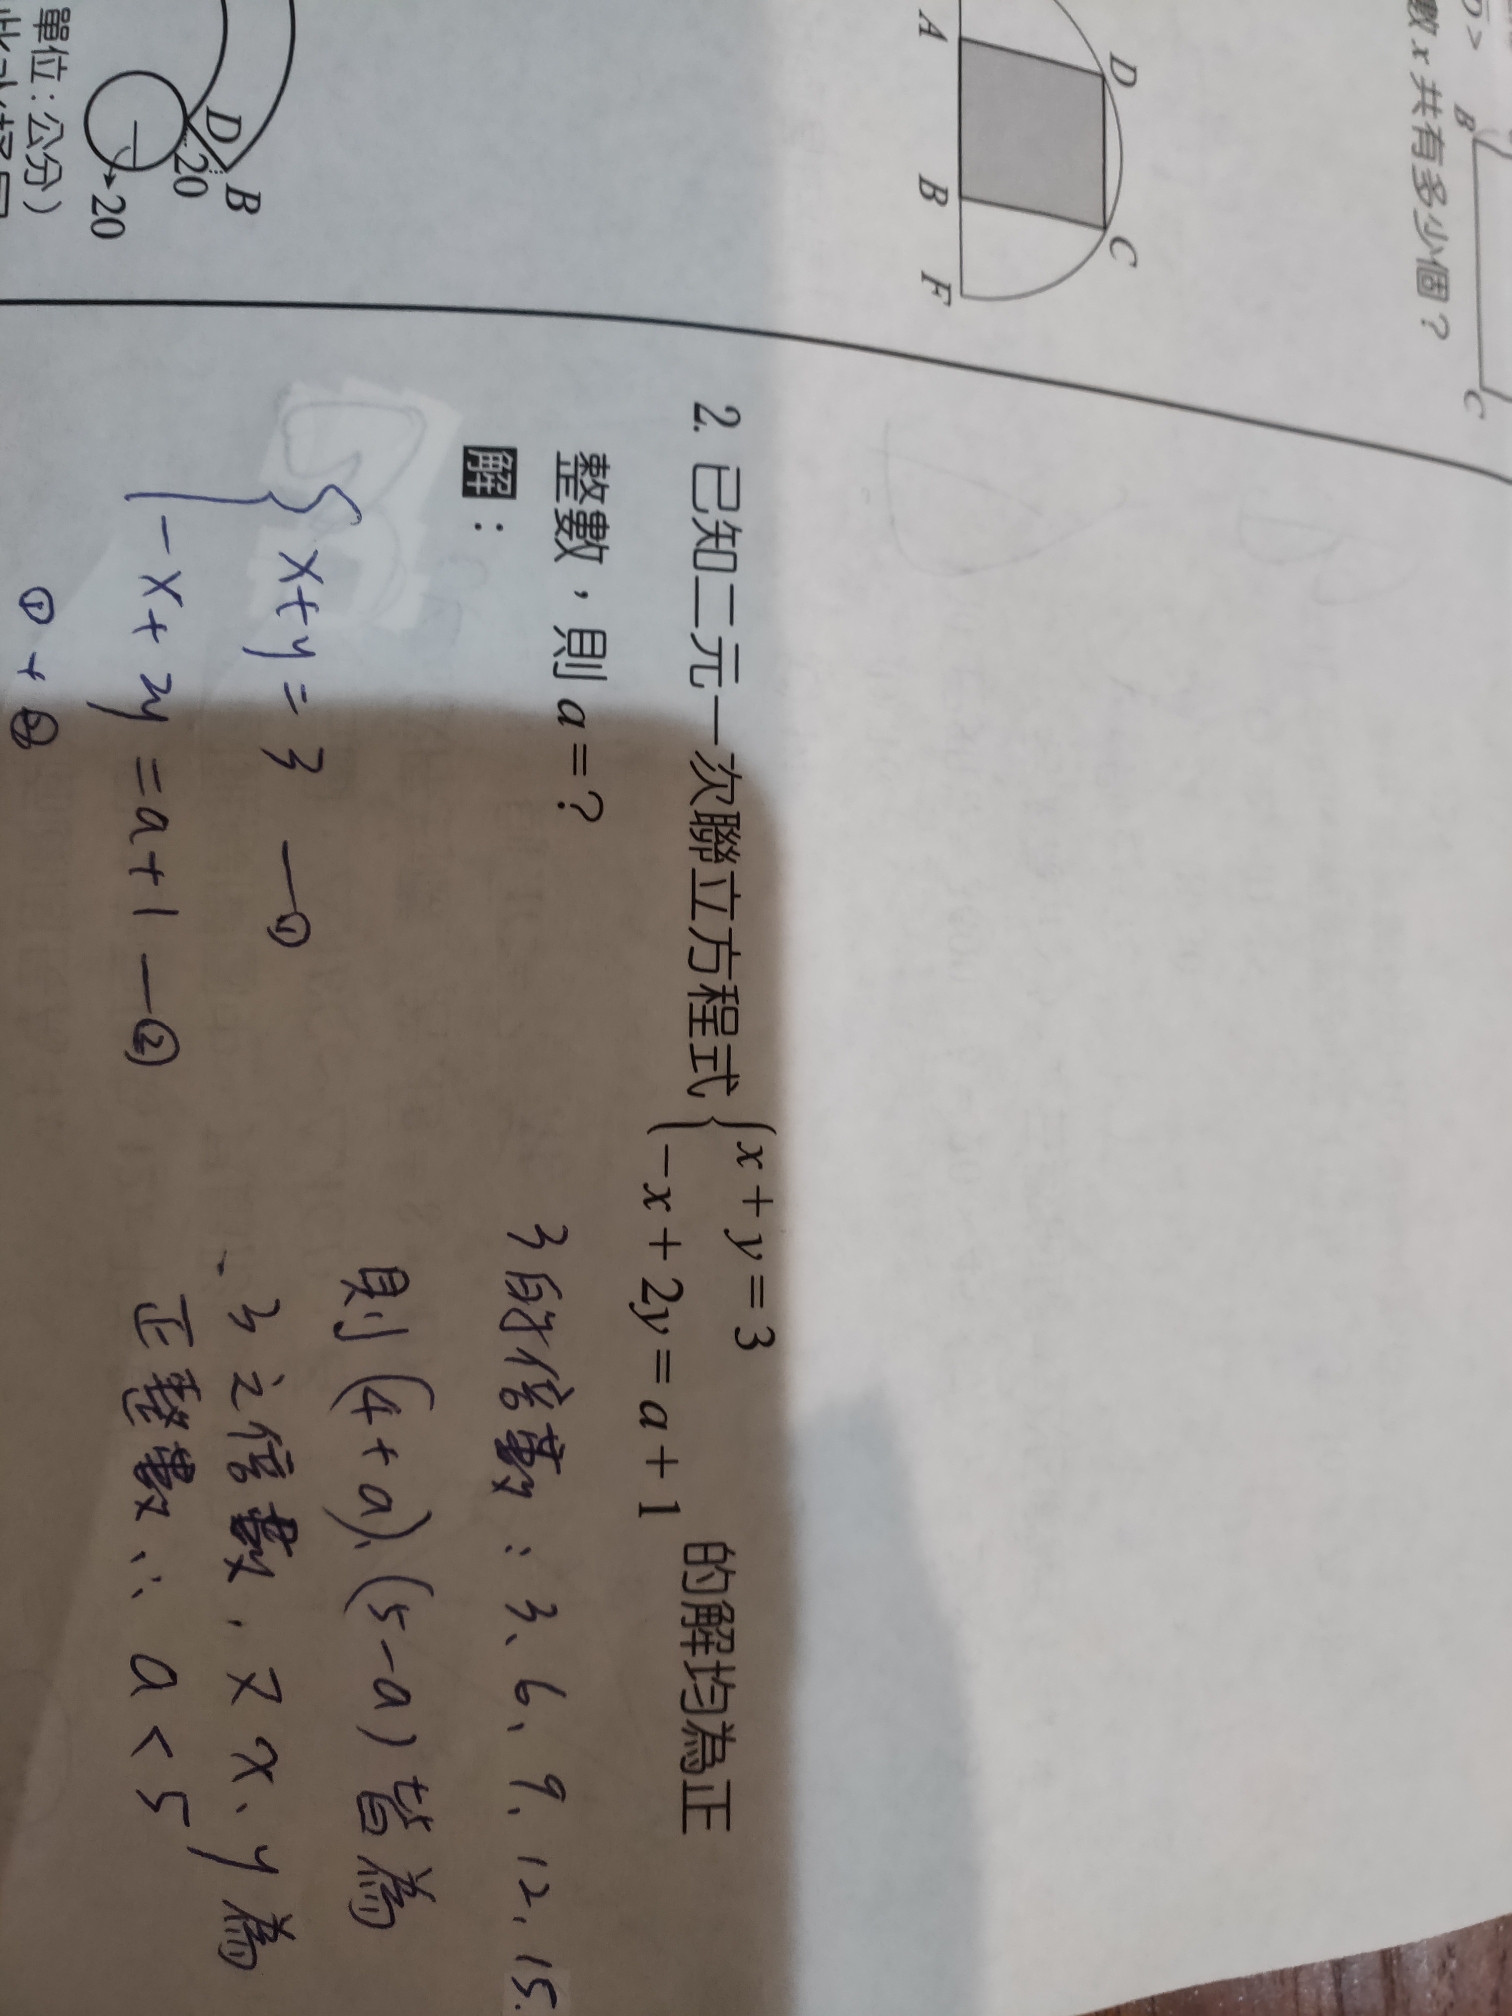 B
C
數 x 共有多少個?
D
C
A
B
F
D
B
20
20
單位:公分)
2. 已知二元一次聯立方程式 { x + y = 3
-x + 2y = a + 1
的解均為正
整數,則 a = ?
解:
x+y = 3 —①
-x+2y = a+1 —②
①+②
3的倍數:3、6、9、12、15.
則(4+a)、(5-a)皆為
3之倍數,又x、y為
正整數∴ a < 5